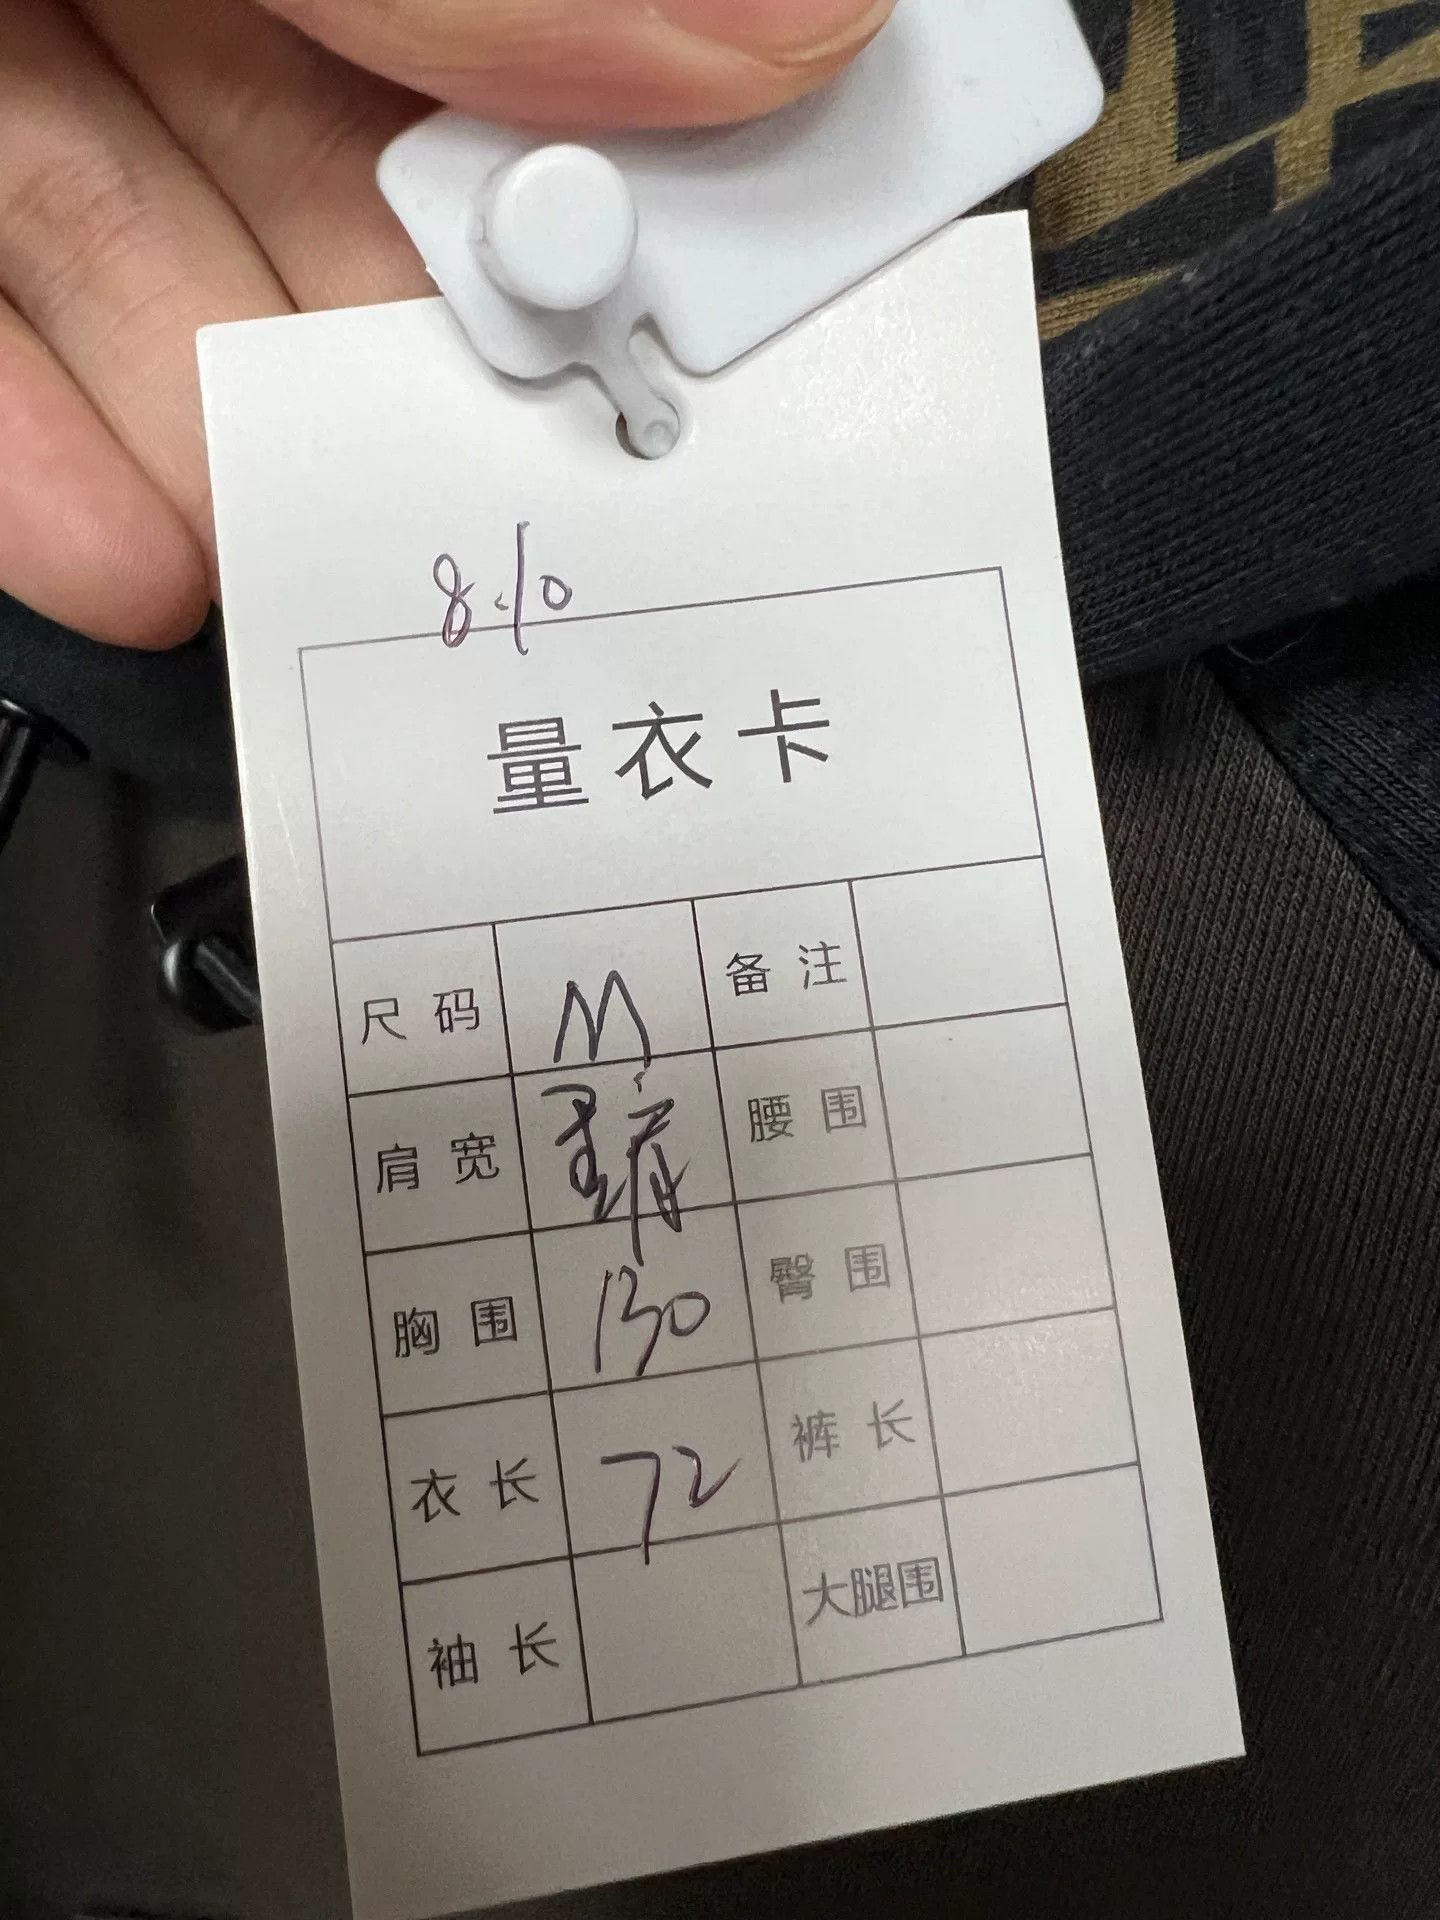 8.10
量衣卡
尺码 M 备注
肩宽 腰围
胸围 130 臀围
衣长 72 裤长
袖长 大腿围